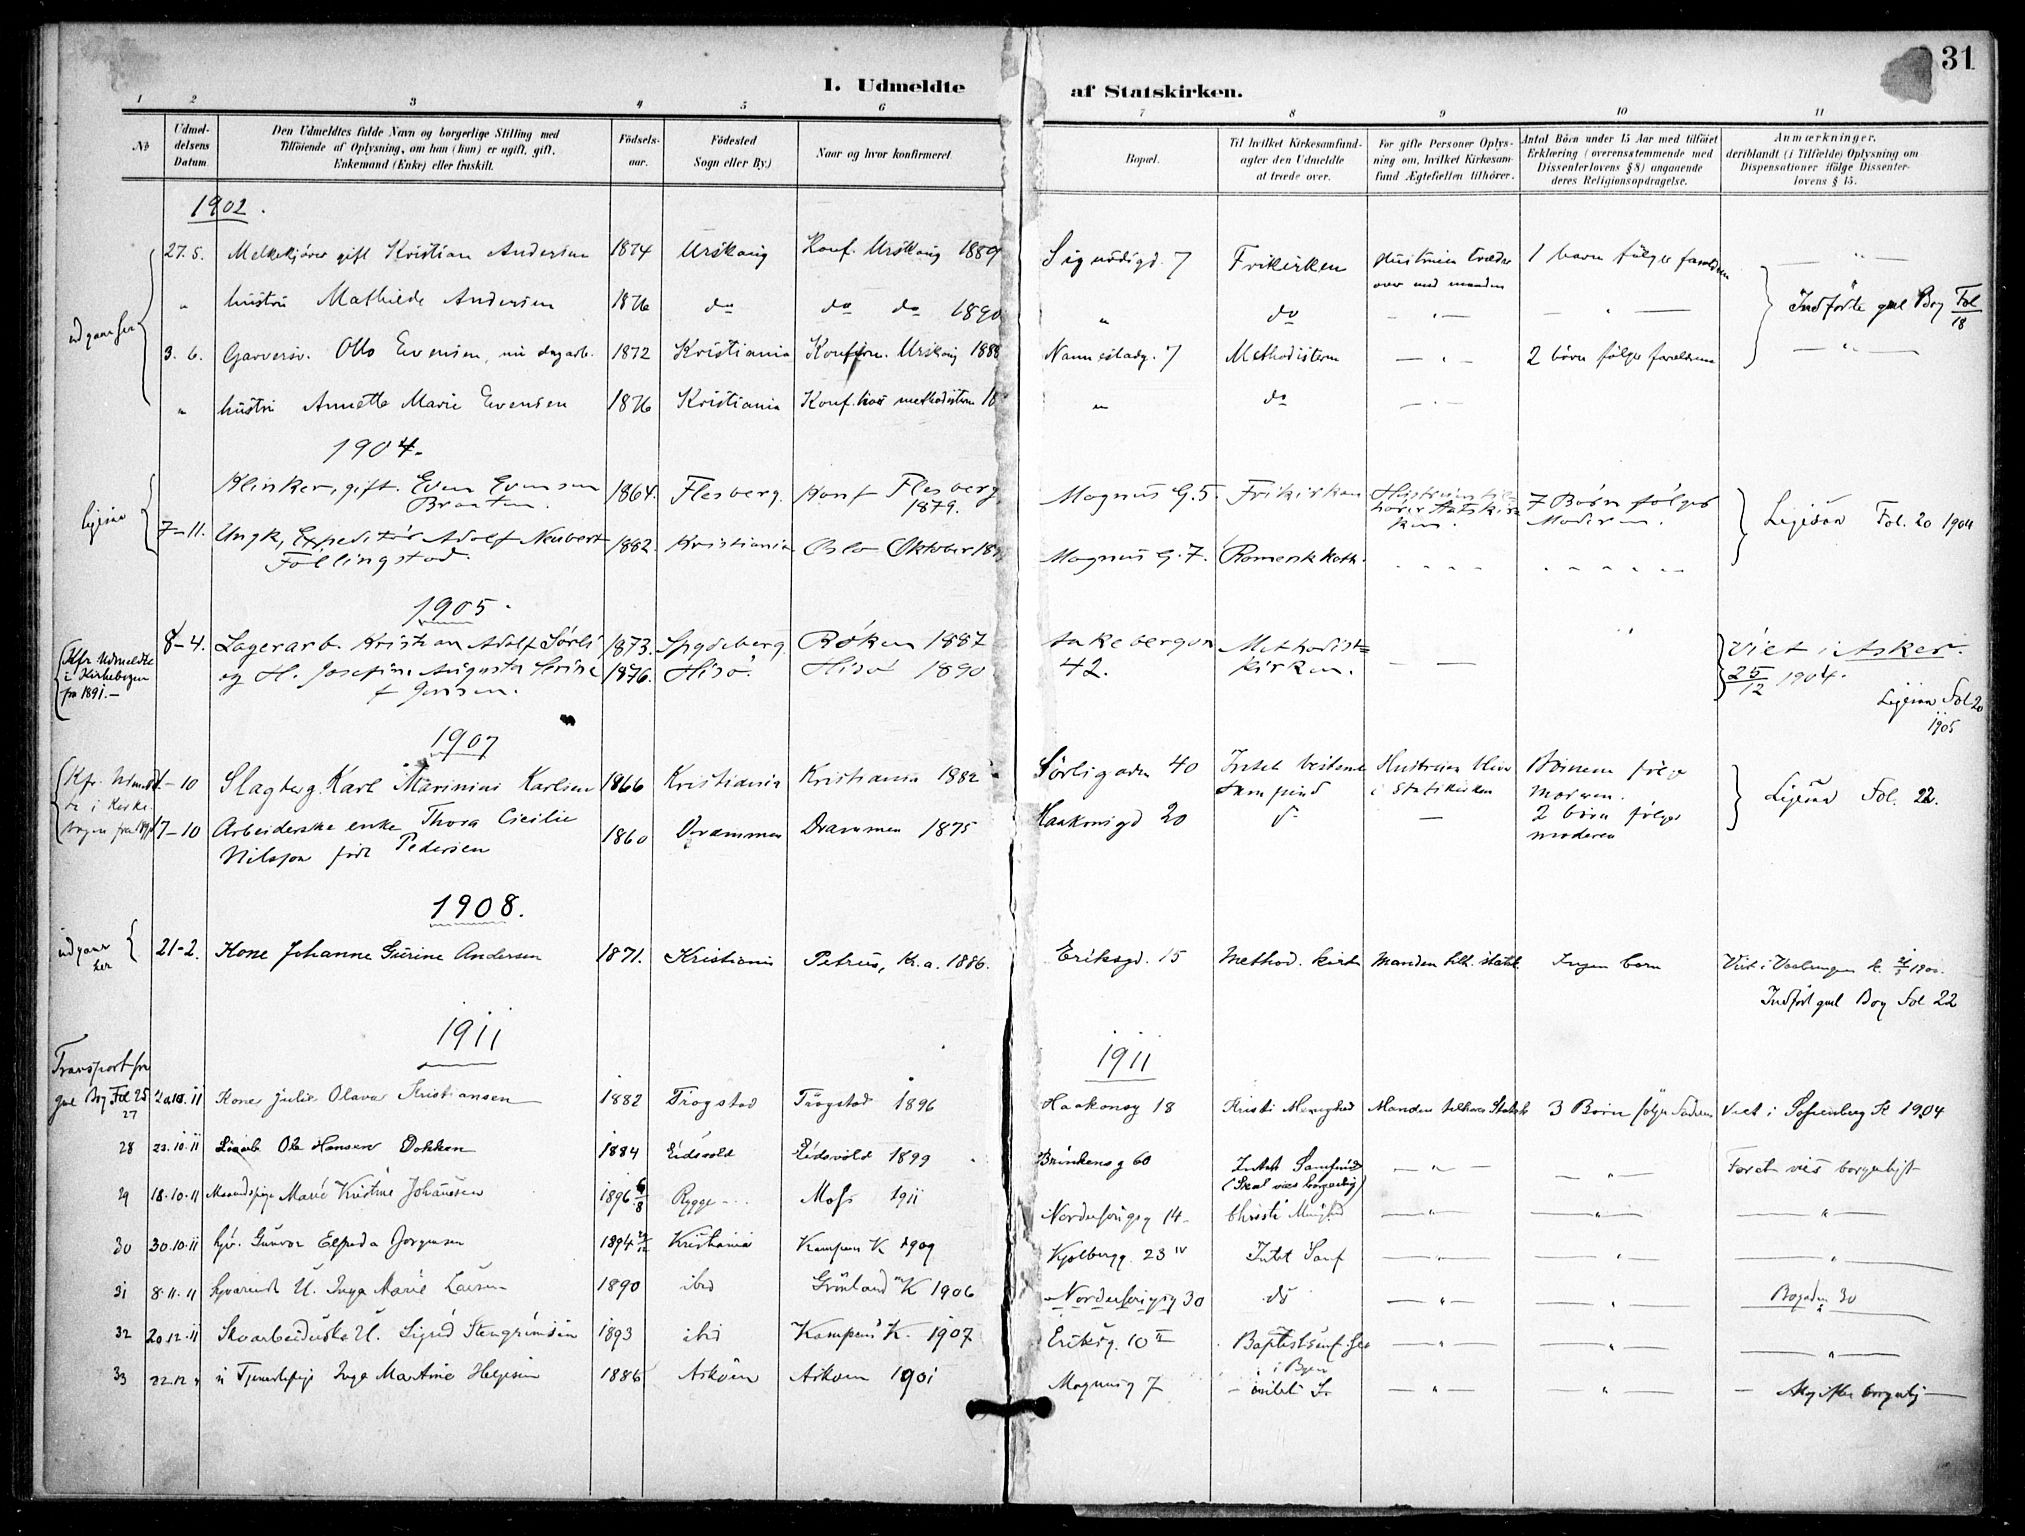 31
I. Udmeldte af Statskirken.
1 2 3 4 5 6 7 8 9 10 11
No
Udmeldelsens Datum.
Den Udmeldtes fulde Navn og borgerlige Stilling med
Tilføiende af Oplysning, om han (hun) er ugift, gift,
Enkemand (Enke) eller fraskilt.
Fødselsaar.
Fødested
Sogn eller By.)
Naar og hvor konfirmeret.
Bopæl.
Til hvilket Kirkesamfund
agter den Udmeldte
at træde over.
For gifte Personer Oplysning
om, hvilket Kirkesamfund
Ægtefællen tilhører.
Antal Børn under 15 Aar med tilføiet
Erklæring (overensstemmende med
Dissenterlovens § 8) angaaende
deres Religionsopdragelse.
Anmærkninger,
deriblandt (i Tilfælde) Oplysning om
Dispensationer ifølge Dissenterlovens
§ 15.
1902.
27. 5. Melkekjører gift Kristian Andersen 1874 Urskoug Konf. Urskoug 1889 Sigurdsgd. 7 Frikirken Hustruen træder over med manden 1 barn følger forældrene
" hustru Mathilde Andersen 1876 do do do 1890 " do
Indførte gul Bog Fol 18
3. 6. Garversv. Otto Evensen, nu dagarb. 1872 Kristiania Konfirm. Urskoug 1888 Nannestadg. 7 Methodisterne 2 børn følger forældrene
" hustru Annette Marie Evensen 1876 Kristiania Konf. hos methodisterne 18 " do
1904.
Ligesaa
Klinker, gift. Even Evensen Braaten. 1864. Flesberg. Konf Flesberg 1879. Magnus G. 5. Frikirken Hustruen tilhører Statskirken. 7 Børn følger Moderen.
7–11. Ungk, Expeditør Adolf Neubert Føllingstad. 1882. Kristiania Oslo Oktober Magnus G. 7. Romersk Kath.
Ligesaa Fol. 20 1904
1905.
Kfr. Udmeldte
i Kirkebogen
fra 1891.–
8–4. Lagerarb. Kristian Adolf Sørli 1873. Spydeberg. Røken 1887 Akebergvn 42. Methodistkirken.
og H. Josefine Augusta f Jensen. 1876. Hisø. Hisø 1890
Viet i Asker.
25/12 1904.
Ligesaa Fol 20
1905
1907
Kfr. Udmeldte i Kirkebogen fra
–10 Slagterg. Karl Marinius Karlsen 1866 Kristiania Kristiania 1882 Sørligaden 40 Intet bestemt Samfund Hustruen bliver i Statskirken Børnene følge moren.
17–10 Arbeiderske enke Thora Cicilie Nilsson født Pedersen 1860 Drammen Drammen 1875 Haakonsgd 20 do – 2 børn følger moderen
Ligesaa Fol. 22.
1908.
udgaar her
21-2. Kone Johanne Gurine Andersen 1871. Kristiania Petrus, Kr.a. 1886. Eriksgd. 15 Method. kirke Manden tilh. statsk. Ingen barn
Indført gul Bog Fol 22
1911 1911
Transport fra
gul Bog Fol 25
27 20.10.11 Kone Julie Olava Kristiansen 1882 Trøgstad Trøgstad 1896 Haakonsg 18 Kristi Menighed Manden tilhører Statsk 3 Børn følger Faderen Viet i Sofienberg K 1904
28 23.10.11 Ole Hansen Dokken 1884 Eidsvold Eidsvold 1899 Brinkensg 60 Intet Samfund (Skal vies borgerlig) Foret. vies borgerligt
29 18.10.11 Marie Kristine Johansen 1896 6/8 Rygge Moss 1911 Nordufsengsg 14 Christi Menighed
30 30.10.11 Gunvor Elfrida Jørgensen 1894 Kristiania Kampens K 1909 Kjølbergg. 23 IV Intet Samf
31 8.11.11 U. Inga Marie Larsen 1890 ibid Grønland K 1906 30 do 30
32 20.12.11 Skoarbeiderske U. Sigrid Stengrimsen 1893 ibid Kampens K. 1907 Eriksg. 10 II Baptistsamf. i Byen
33 22.12 " Tjenestepige Inga Martine Helgesen 1886 Askøen Askøen 1901 Magnusg 7